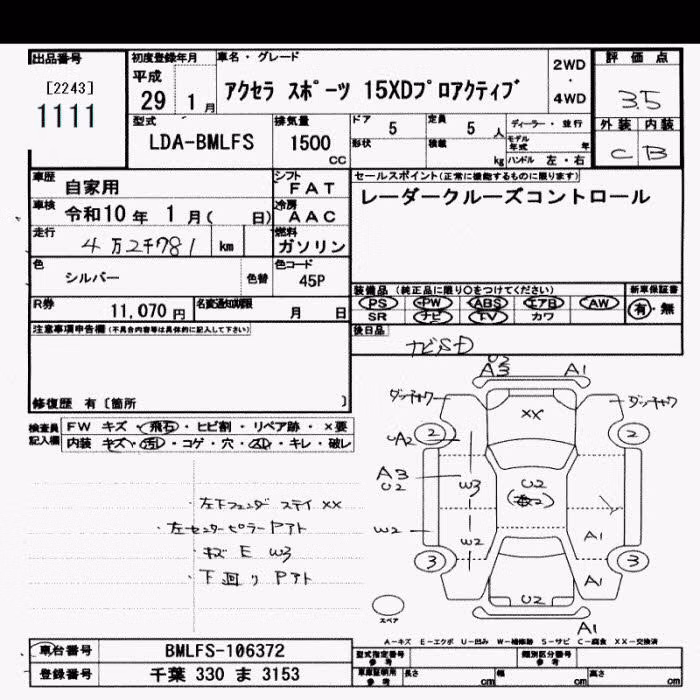 出品番号
[2243]
1111
初度登録年月
平成
29 1 月
車名・グレード
アクセラ スポーツ 15XDプロアクティブ
2WD
・
4WD
評価点
3.5
外装 内装
C B
型式
LDA-BMLFS
排気量
1500
CC
ドア
5
定員
5 人
形状
積載
kg
ディーラー・並行
モデル年式 年
ハンドル 左・右
車歴
自家用
シフト
FAT
車検
令和10 年 1 月( 日)
冷房
AAC
走行
4万2千781 km
燃料
ガソリン
色
シルバー
色替
色コード
45P
R券
11,070 円
名変通知期限
月 日
セールスポイント(正常に機能するものに限ります)
レーダークルーズコントロール
装備品 (純正品に限り○をつけてください)
PS PW ABS エアB AW
SR ナビ TV カワ
新車保証書
有・無
後日品
ナビSD
注意事項申告欄(不具合内容等は具体的に記入して下さい)
修復歴 有〔箇所 〕
検査員記入欄
FW キズ・飛石・ヒビ割・リペア跡・×要
内装 キズ・汚れ・コゲ・穴・スレ・キレ・破レ
・左下フェンダ ステイ XX
・左センターピラー Pアト
・キズ E W3
・下回り Pアト
U2
A3
A1
ダッチャク
ダッチャク
XX
2
2
UA2
A3
U2
W3
U2
W2
W2
A1
3
3
A1
U2
A1
スペア
A-キズ E-エクボ U-凹み W-補修跡 S-サビ C-腐食 XX-交換済
車台番号
BMLFS-106372
登録番号
千葉 330 ま 3153
型式指定番号
参考
類別区分番号
参考
車庫証明用
参考
長さ cm
幅 cm
高さ cm